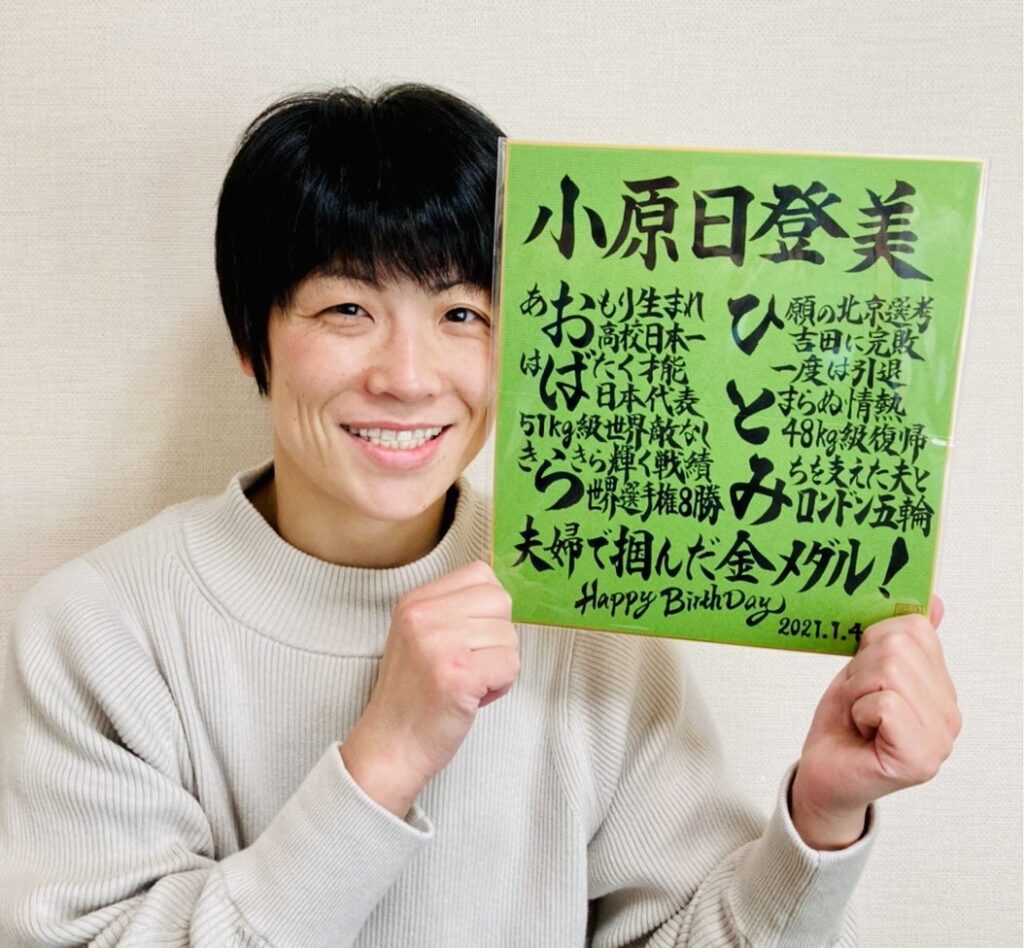 小原日登美
あおもり生まれ
高校日本一
はばたく才能
日本代表
51kg級世界敵なし
きらきら輝く戦績
世界選手権8勝
ひ願の北京選考
吉田に完敗
一度は引退
とまらぬ情熱
48kg級復帰
みちを支えた夫と
ロンドン五輪
夫婦で掴んだ金メダル!
Happy BirthDay
2021.1.4